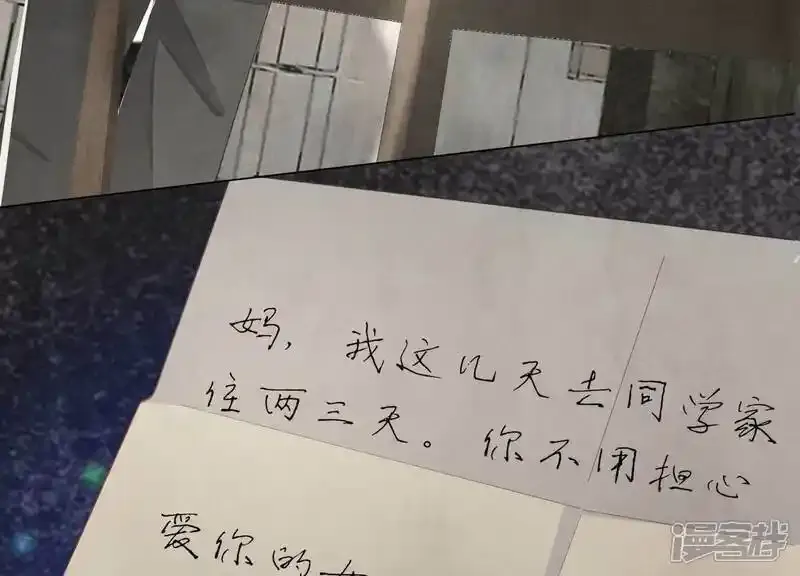 妈，我这几天去同学家
住两三天。你不用担心
爱你的
漫客栈